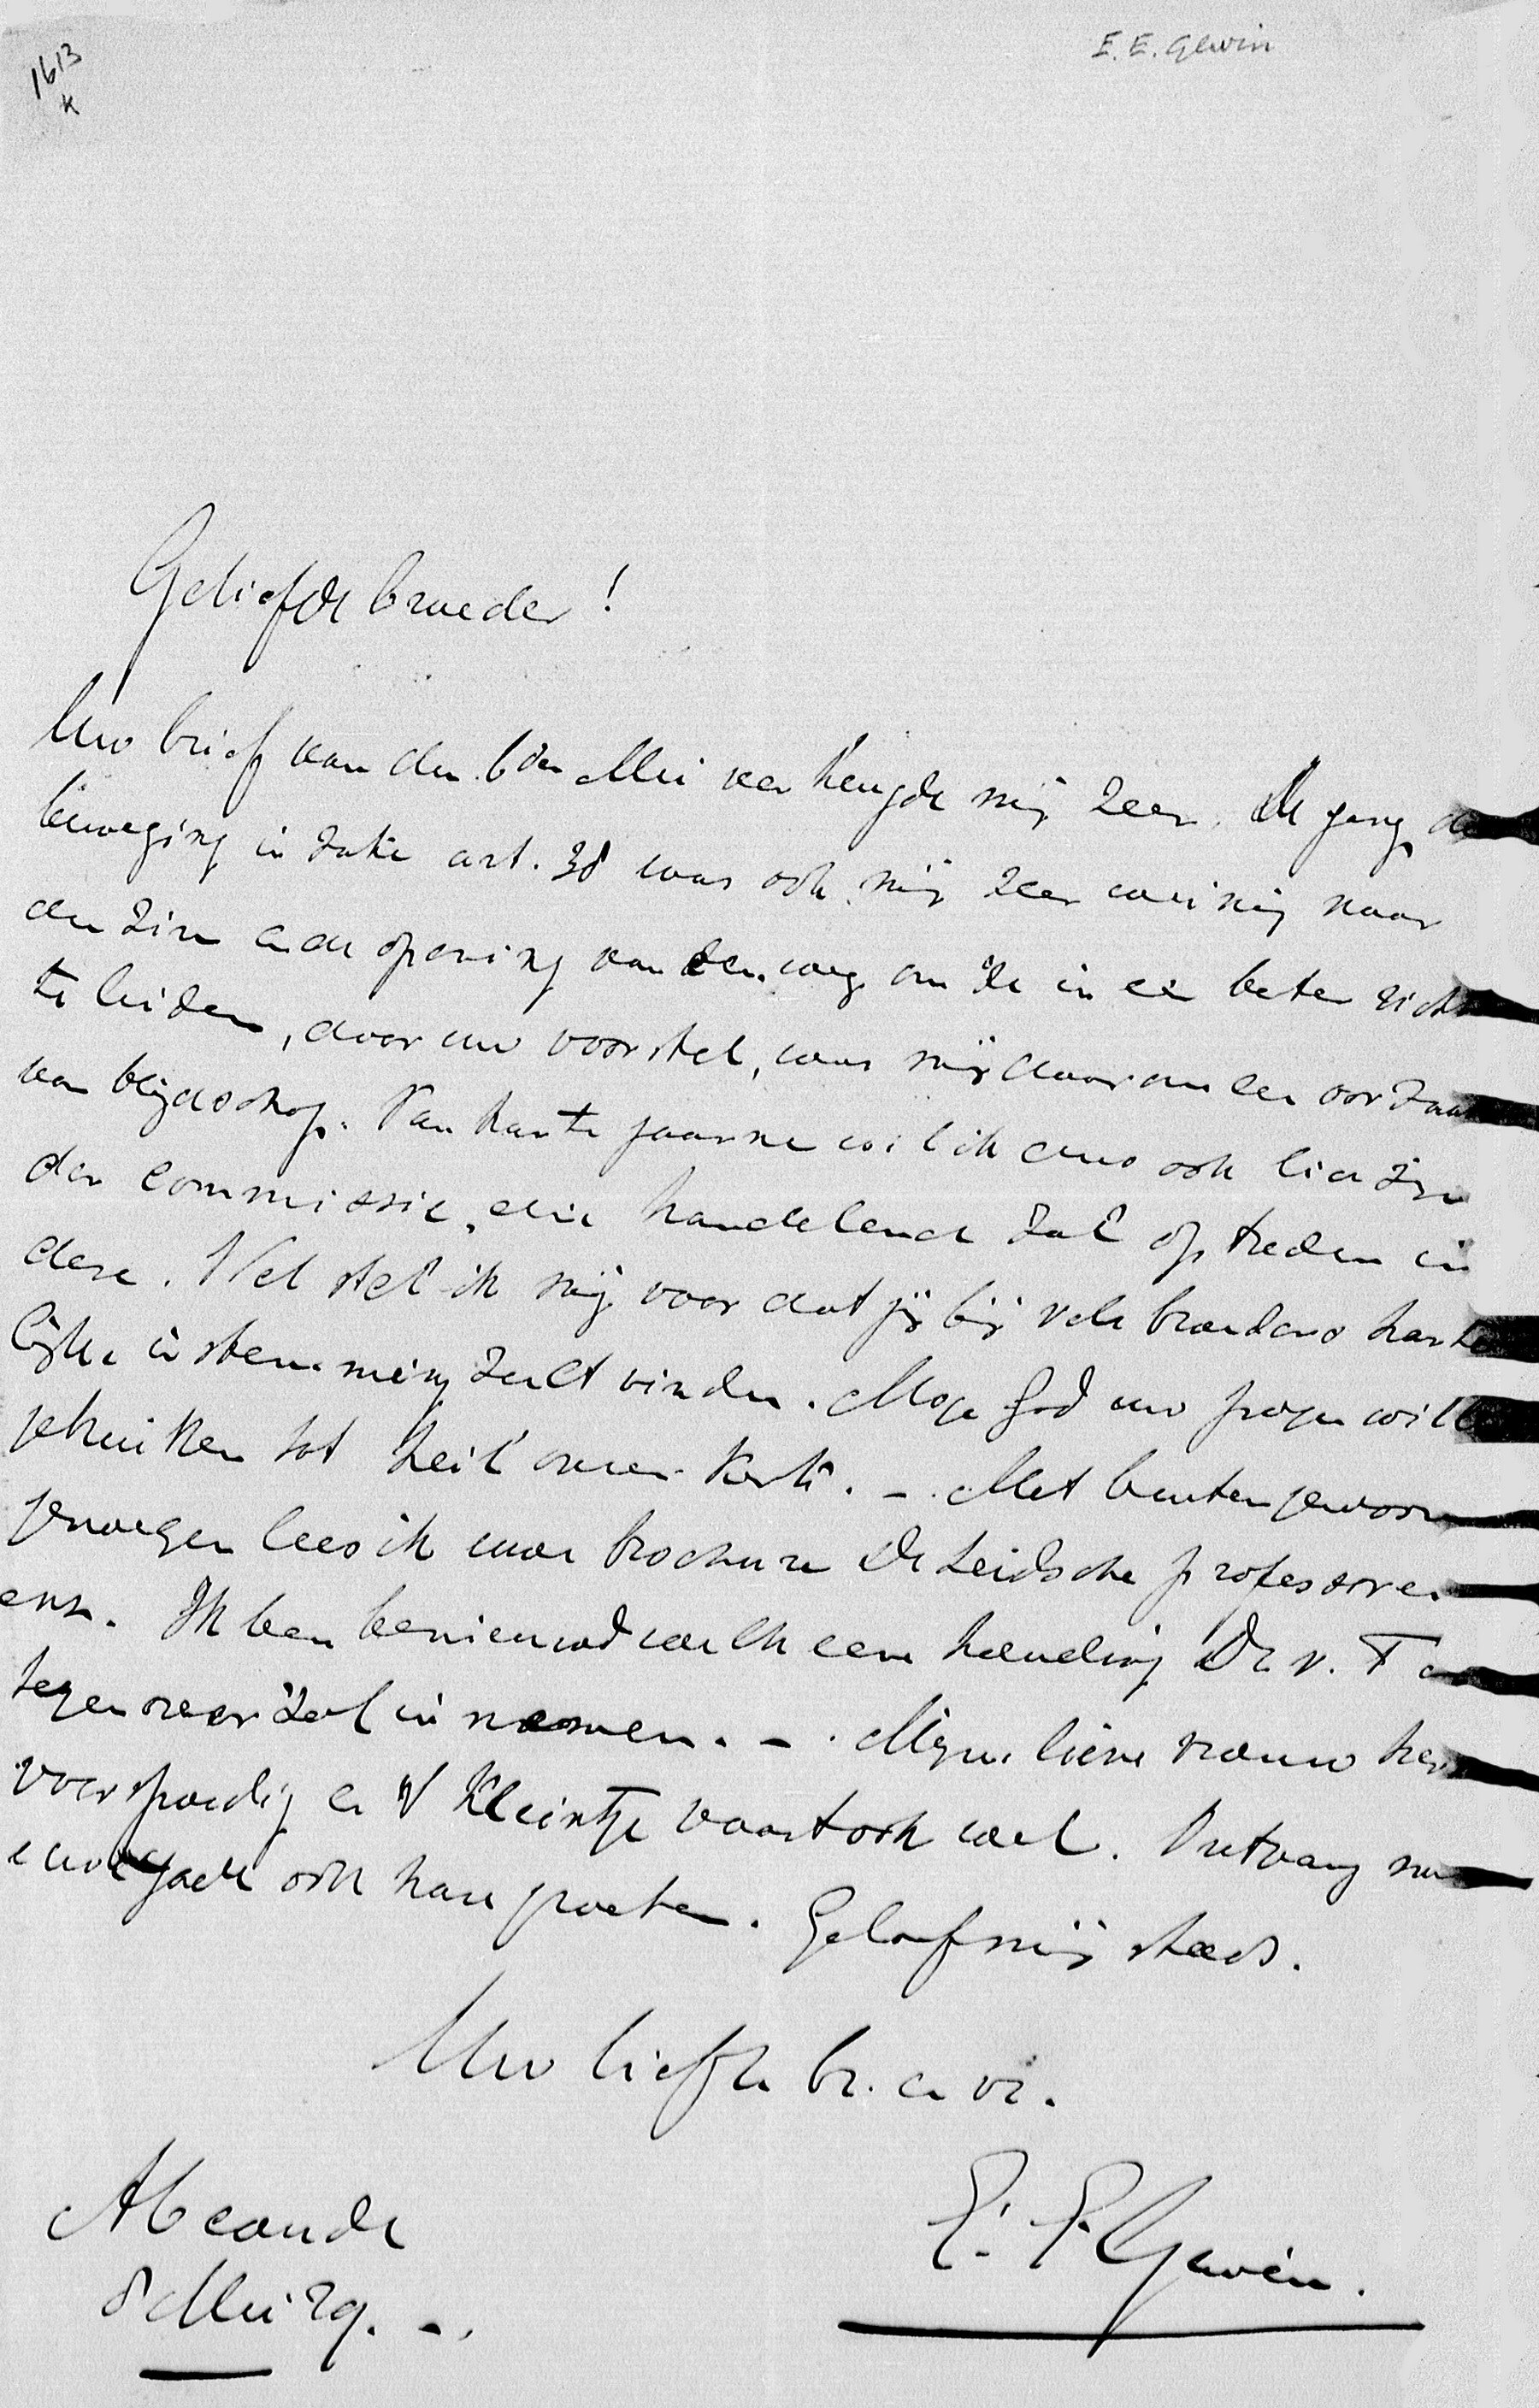 1613
K
E. E. Gewin
Geliefde broeder!
Uw brief van den 6den Mei verheugde mij zeer. De gang de
beweging in zake art. 38 was ook mij zeer weinig naar
den zin en de opening van een weg om die in een beter richt
te leiden, door uw voorstel, was mij daarom een oorzaak
van blijdschap. Van harte gaarne wil ik dus ook lid zijn
der commissie, die handelend zal optreden in
deze. Wel stel ik mij voor dat gij bij vele broeders harte
lijke instemming zult vinden. Moge God uw pogen will
gebruiken tot heil onzer kerk. - Met buitengewoon
genoegen lees ik uwe brochure De Leidsche professoren
enz. Ik ben benieuwd welk een houding Dr. v. T
tegenover zal innemen. - . Mijne lieve vrouw her
voorspoedig en 't kleintje vaart ook wel. Ontvang nu
en uwe gade ook hare groeten. Geloof mij steeds.
Uw liefh. br. en vr.
E. E. Gewin.
Abcoude
8 Mei 29. -.